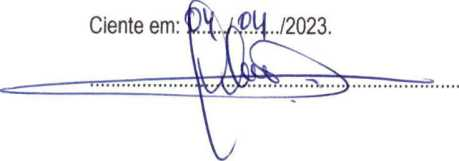 Ciente em: 04/04/2023.